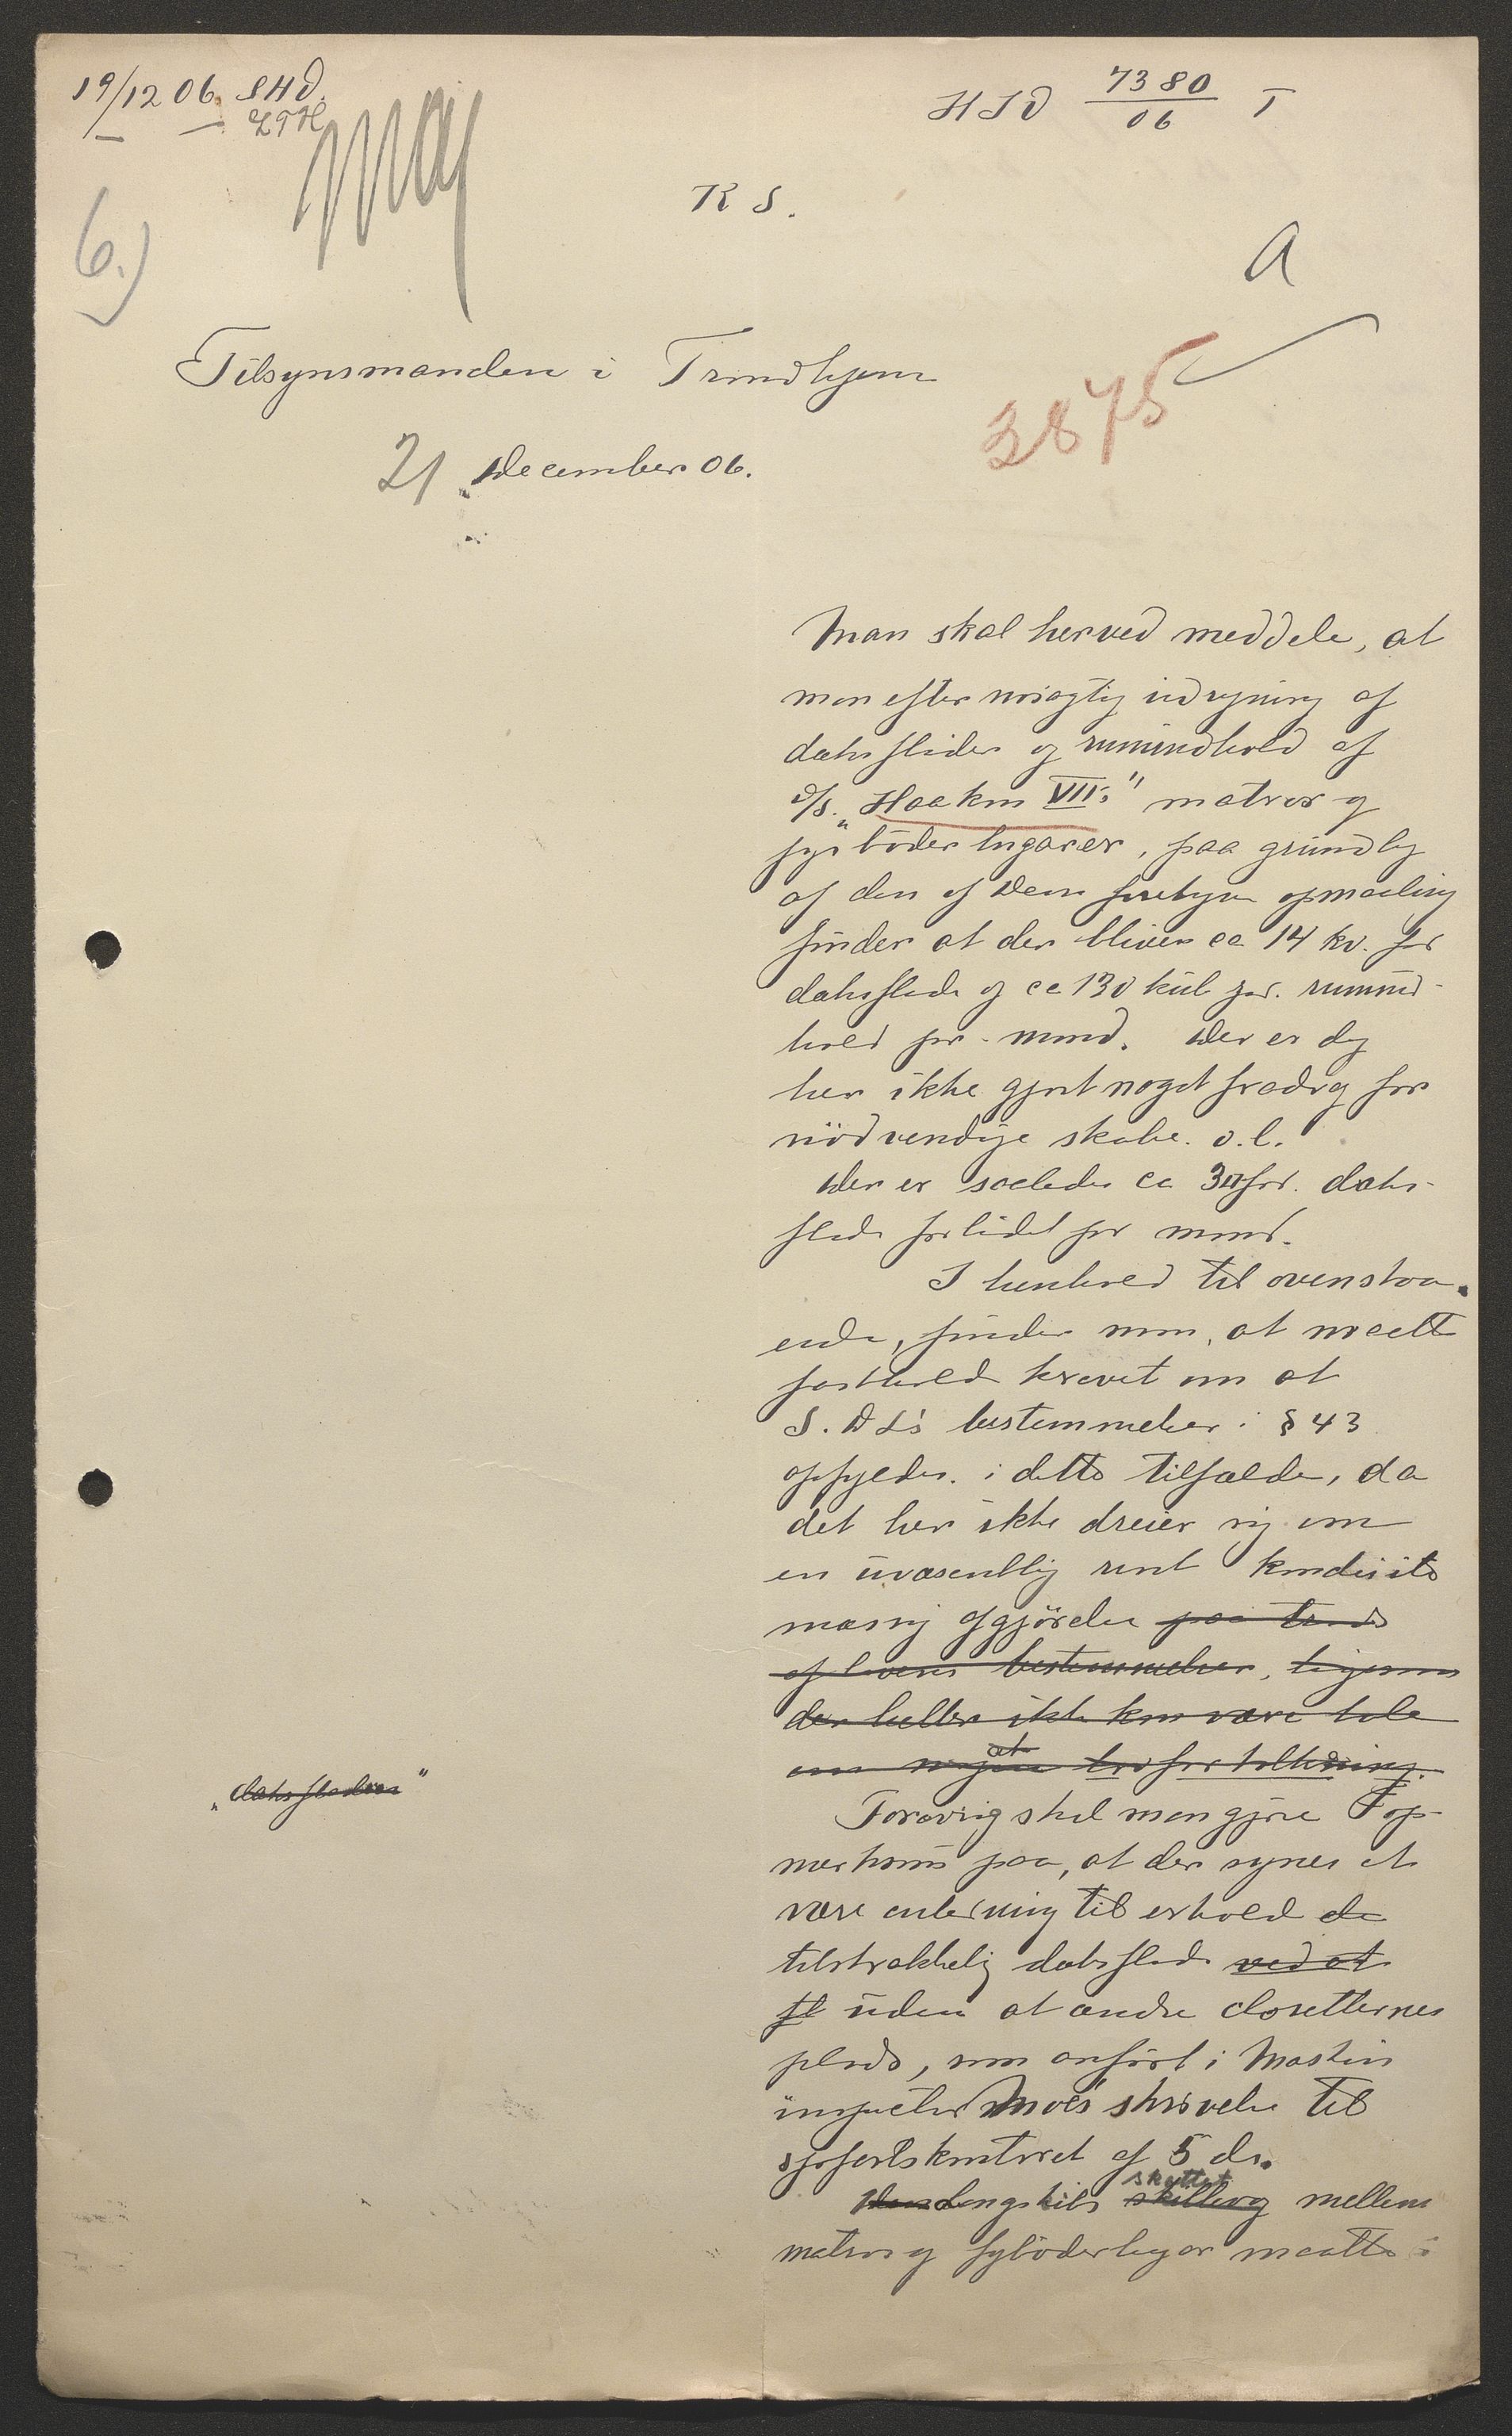 19/12 06. SHD.
HSD 7380/06 T
R S.
6.)
a
Tilsynsmanden i Trondhjem
3875
21 December 06.
Man skal herved meddele, at
man efter nöiagtig udregning af
dæksflade og rumindhold af
d/s. „Haakon VII's" matros og
fyrböder lugarer, paa grundlag
af den af Dem foretagne opmaaling
finder at der bliver ca 14 kv. fod
dæksflade og ca 130 kub. fod. rumind-
hold pr. mand. Der er dog
her ikke gjort noget fradrag for
nödvendige skabe. o.l.
Der er saaledes ca 3 fod. dæks-
flade forlidet pr mand.
I henhold til ovenstaa-
ende, finder man, at maatte
fastholde kravet om at
S. D L's bestemmelser i § 43
opfyldes. i dette tilfælde, da
det her ikke dreier sig om
en uvæsentlig rent
mæssig afgjörelse paa trods
af lovens bestemmelser, ligesom
der heller ikke kan være tale
om nogen at
„dæksfladen"
Forövrig skal man gjöre op-
merksom paa, at der synes at
være anledning til erholde de
tilstrækkelig dæksflade ved at
fl uden at ændre closetternes
plads, som anfört i Maskin
inspektör Moe's skrivelse til
sjöfartskontoret af 5 ds.
Den Langskibs skilleveg skottet mellem
matros og fyrböderlugar maatte i